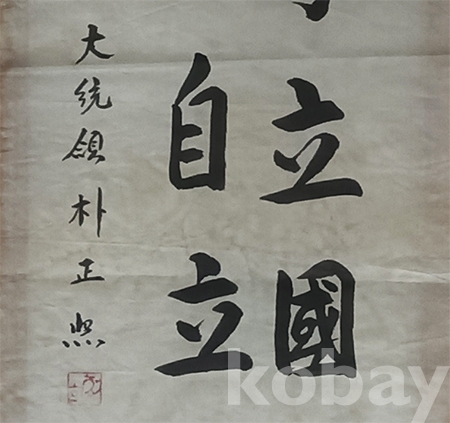 立國
自立
大統領朴正熙
kobay